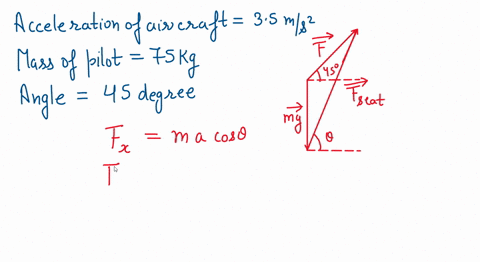 Acceleration of aircraft = 3.5 m/s²
Mass of pilot = 75 Kg
Angle = 45 degree
F⃗
45°
F⃗seat
m⃗g
θ
Fx = m a cosθ